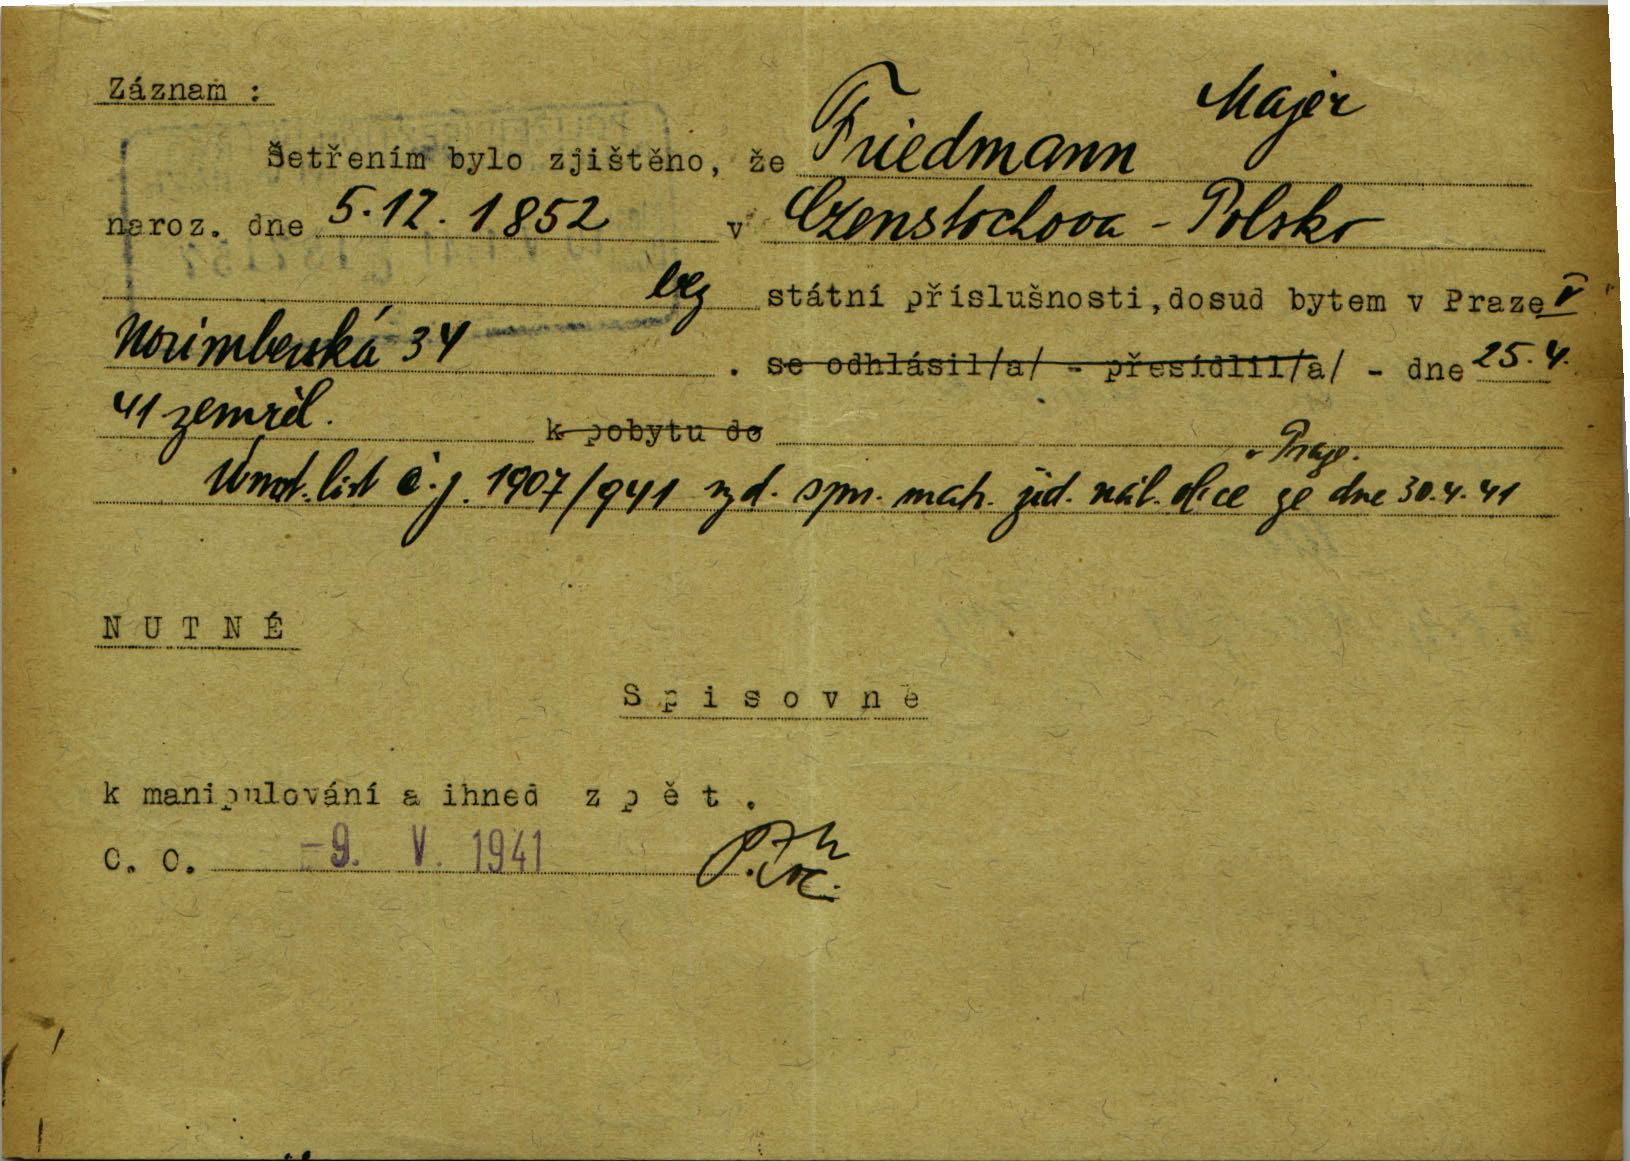 Záznam :
Majer
Šetřením bylo zjištěno, že Friedmann
naroz. dne 5.12. 1852 v Czenstochova - Polsko
bez státní příslušnosti, dosud bytem v Praze V
Norimberská 34 . se odhlásil/a/ - přesídlil/a/ - dne 25.4.
41 zemřel. k pobytu do
v Praze.
Úmrt. list č.j. 1907/941 vyd. spr. matr. žid. náb. obce ze dne 30.4.41
NUTNÉ
Spisovně
k manipulování a ihned zpět.
C. O. -9. V. 1941